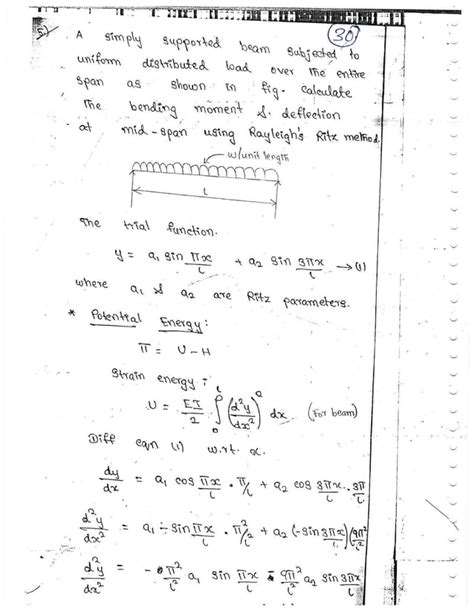 30
5) A simply supported beam subjected to
uniform distributed load over the entire
span as shown in fig. calculate
the bending moment & deflection
at mid-span using Rayleigh's Ritz method.
w/unit length
l
The trial function.
y = a₁ sin πx/l + a₂ sin 3πx/l → (1)
where a₁ & a₂ are Ritz parameters.
* Potential Energy:
π = U - H
Strain energy :
U = EI/2 ∫₀ˡ (d²y/dx²)² dx (For beam)
Diff eqn (1) w.r.t. x.
dy/dx = a₁ cos πx/l . π/l + a₂ cos 3πx/l . 3π/l
d²y/dx² = a₁ - sin πx/l . π²/l² + a₂ (-sin 3πx/l) (9π²/l²)
d²y/dx² = - π²/l² a₁ sin πx/l - 9π²/l² a₂ sin 3πx/l